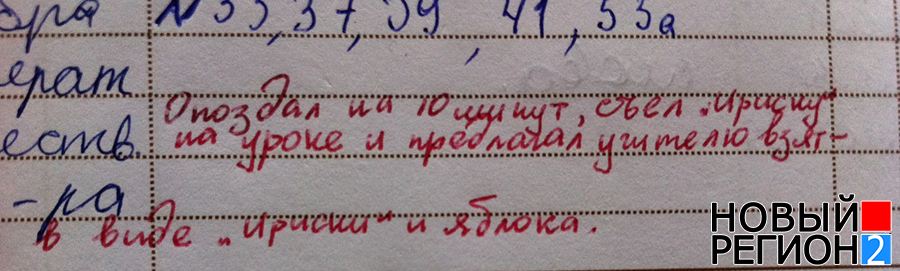 бра №35, 37, 39, 41, 53а
ерат
Опоздал на 10 минут, съел „Ириску“
еств. на уроке и предлагал учителю взят-
-ра
в виде „Ириски“ и яблока.
НОВЫЙ
РЕГИОН 2